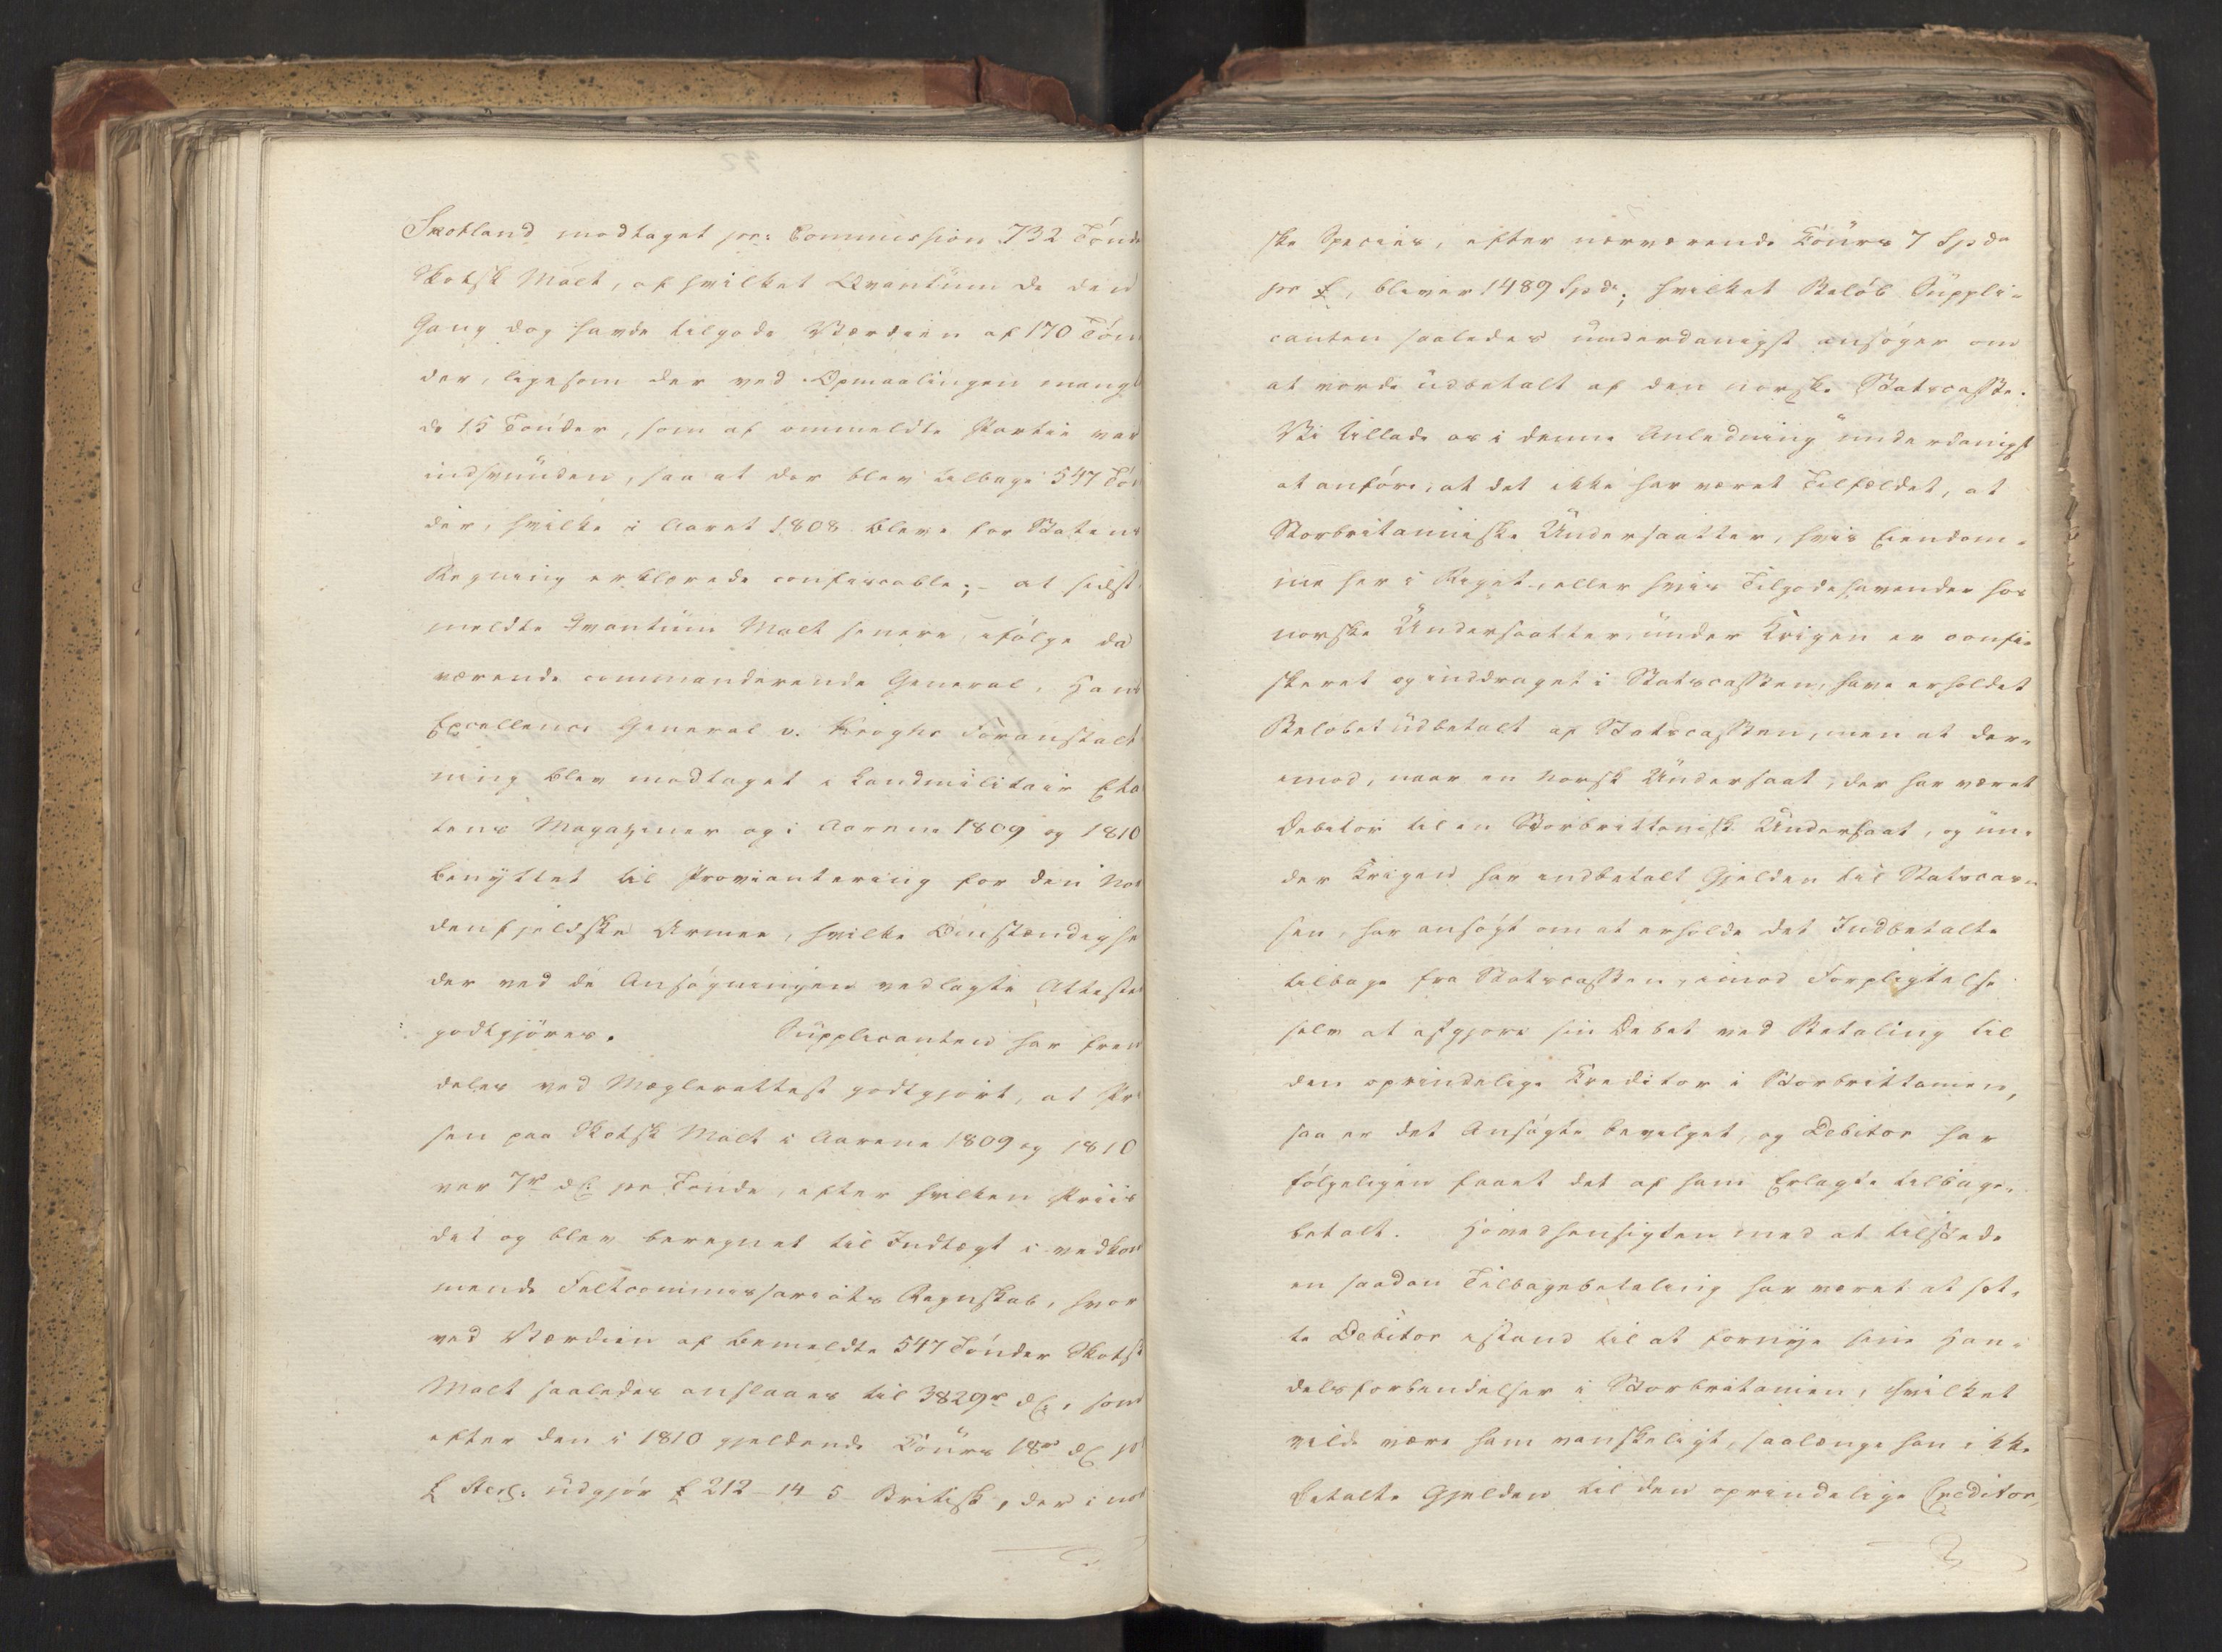 Skotland modtaget pr: Commission 732 Tönde
Skotsk Malt, af hvilket Qvantum de den
Gang dog havde tilgode Værdien af 170 Tön
der, ligesom der ved Opmaalingen mang
de 15 Tönder, som af ommeldte Partie var
indsvunden, saa at der blev tilbage 547 Tön
der, hvilke i Aaret 1808 bleve for Statens
Regning erklærede confiscable; - at sidst
meldte Qvantum Malt senere, ifölge da
værende commanderende General, Hans
Excellence General v. Kroghs Foranstalt
ning blev modtaget i Landmilitair Eta
tens Magaziner og i Aarene 1809 og 1810
benyttet til Proviantering for den Nor
denfjeldske Armee, hvilke Omstændighe
der ved de Ansögningen vedlagte Attester
godtgjöres. Supplicanten har frem
deles ved Mæglerattest godtgjort, at Pri
sen paa Skotsk Malt i Aarene 1809 og 1810
var 7 r dl: pr Tönde, efter hvilken Priis
det og blev beregnet til Indtægt i vedkom
mende Feltcommissariats Regnskab, hvor
ved Værdien af bemeldte 547 Tönder Skotsk
Malt saaledes anslaaes til 3829 r dl, som
efter den i 1810 gjeldende Cours 18 r dl pr
£ Sterl: udgjör £ 212 - 14 - 5 Britisk, der i nor
ske Species, efter nærværende Cours 7 Spdr
pr £, bliver 1489 Spdr; hvilket Belöb Suppli-
canten saaledes underdanigst ansöger om
at vorde udbetalt af den norske Statscasse.
Vi tillade os i denne Anledning underdanigst
at anföre, at det ikke har været Tilfældet, at
Storbritanniske Undersaatter, hvis Eiendom-
me her i Riget, eller hvis Tilgodehavender hos
norske Undersaatter, under Krigen er confi-
skeret og inddraget i Statscassen, have erholdet
Belöbet udbetalt af Statscassen, men at der-
imod, naar en Norsk Undersaat, der har været
Debitor til en Storbrittanisk Undersaat, og un-
der Krigen har indbetalt Gjelden til Statscas-
sen, har ansögt om at erholde det Indbetalte
tilbage fra Statscassen, imod Forpligtelse
selv at afgjöre sin Debet ved Betaling til
den oprindelige Creditor i Storbrittanien,
saa er det Ansögte bevilget, og Debitor har
fölgeligen faaet det af ham Erlagte tilbage-
betalt. Hovedhensigten med at tilstede
en saadan Tilbagebetaling har været at sæt-
te Debitor istand til at fornye sine Han-
delsforbindelser i Storbritanien, hvilket
vilde være ham vanskeligt, saalænge han ikke
betalte Gjelden til den oprindelige Creditor,